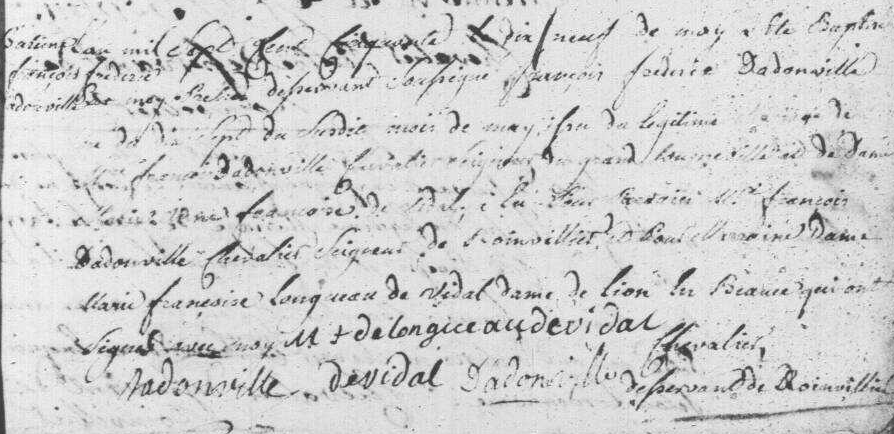 L'an mil sept cent cinquante et dix neuf de may a été Baptisé
françois frederic
par moy Prêtre desservant soussigné françois frederic Dadonville
dadonville
né du dix sept du susdit mois de may, issu du legitime mariage de
Mre françois Dadonville Chevalier seigneur du grand et de Dame
françoise de Vidal, a Eu Pour Parrain Mre françois
Dadonville Chevalier Seigneur de Roinvillier, et Pour Marraine Dame
Marie françoise Longueau de Vidal dame de lion En Beauce qui ont
Signés avec moy M f delongueaudevidal
Chevalier,
Dadonville devidal Dadonville
desservant de Roinvillier